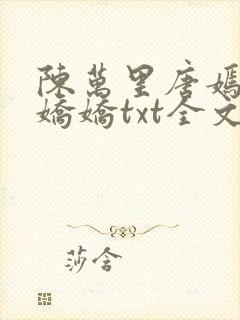 陳萬里唐嫣
嬌嬌txt全文
莎含